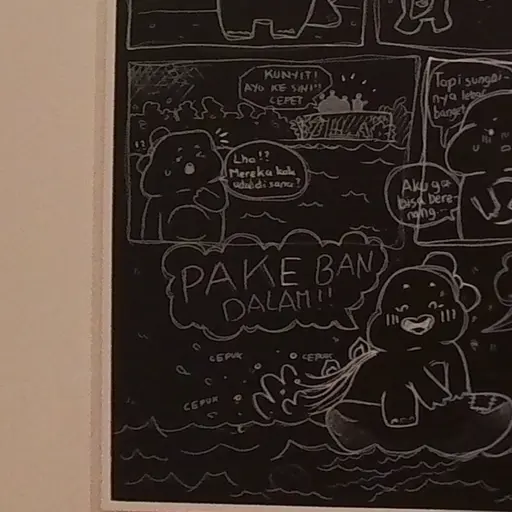 KUNYIT!
AYO KE SINI!!
CEPET
!?
Lho!?
Mereka kok
udah di sana?
Tapi sungai-
nya lebar
banget
Aku ga
bisa bere-
nang...
PAKE BAN
DALAM!!
CEPUK
CEPUK
CEPUK